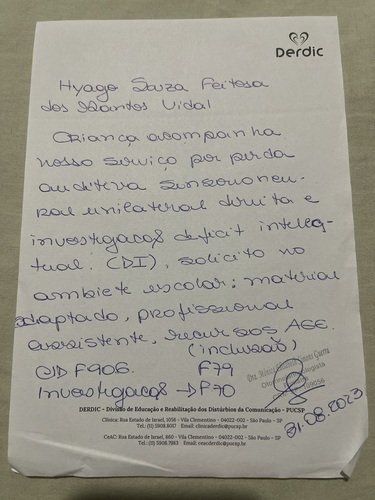 Derdic
Hyago Souza Feitosa
dos Santos Vidal
Criança acompanha
nosso serviço por perda
auditiva sensorioneu-
ral unilateral direita e
investigação deficit intelec-
tual. (DI), solicito no
ambiete escolar; material
adaptado, profissional
assistente, recursos AEE.
(inclusão)
CID F906. F79
Investigação → F70
31.08.2023
DERDIC - Divisão de Educação e Reabilitação dos Distúrbios da Comunicação - PUCSP
Clínica: Rua Estado de Israel, 1056 - Vila Clementino - 04022-002 - São Paulo - SP
Tel.: (11) 5908.8017 Email: clinicaderdic@pucsp.br
CeAC: Rua Estado de Israel, 860 - Vila Clementino - 04022-002 - São Paulo - SP
Tel.: (11) 5908.7983 Email: ceacderdic@pucsp.br